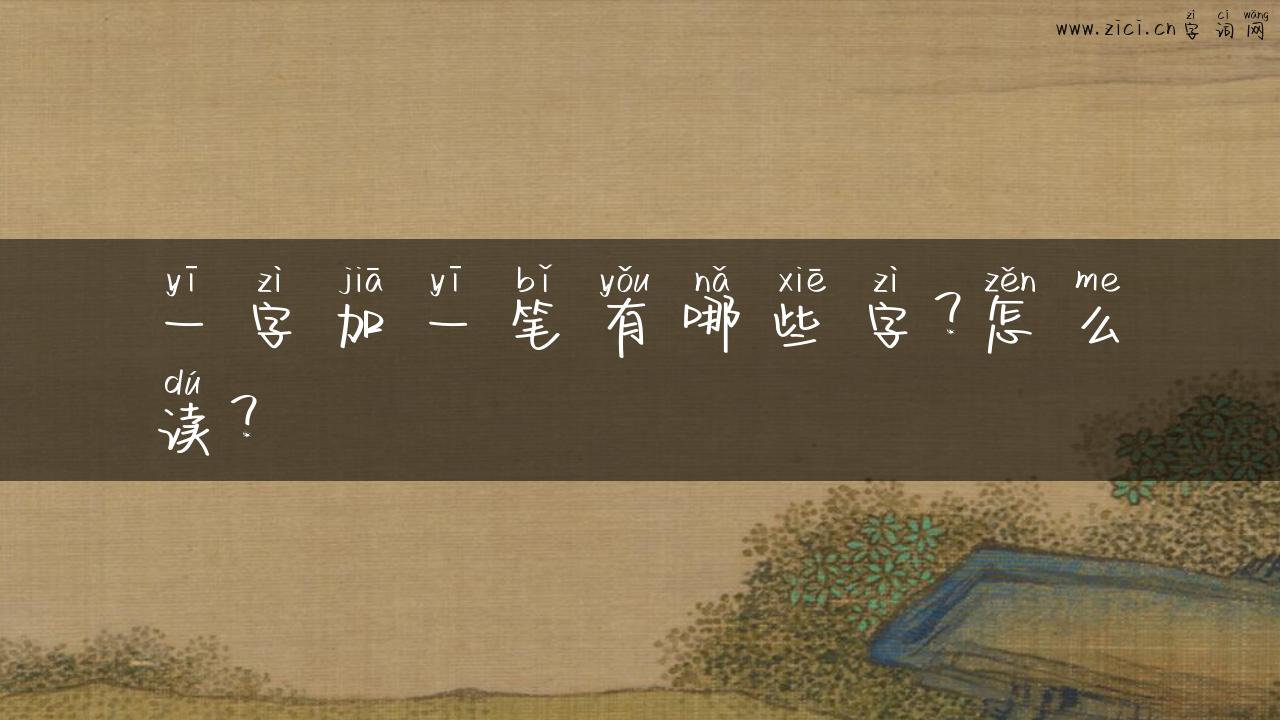 zì cí wǎng
www.zici.cn 字 词 网
yī zì jiā yī bǐ yǒu nǎ xiē zì zěn me
一 字 加 一 笔 有 哪 些 字 ? 怎 么
dú
读 ?